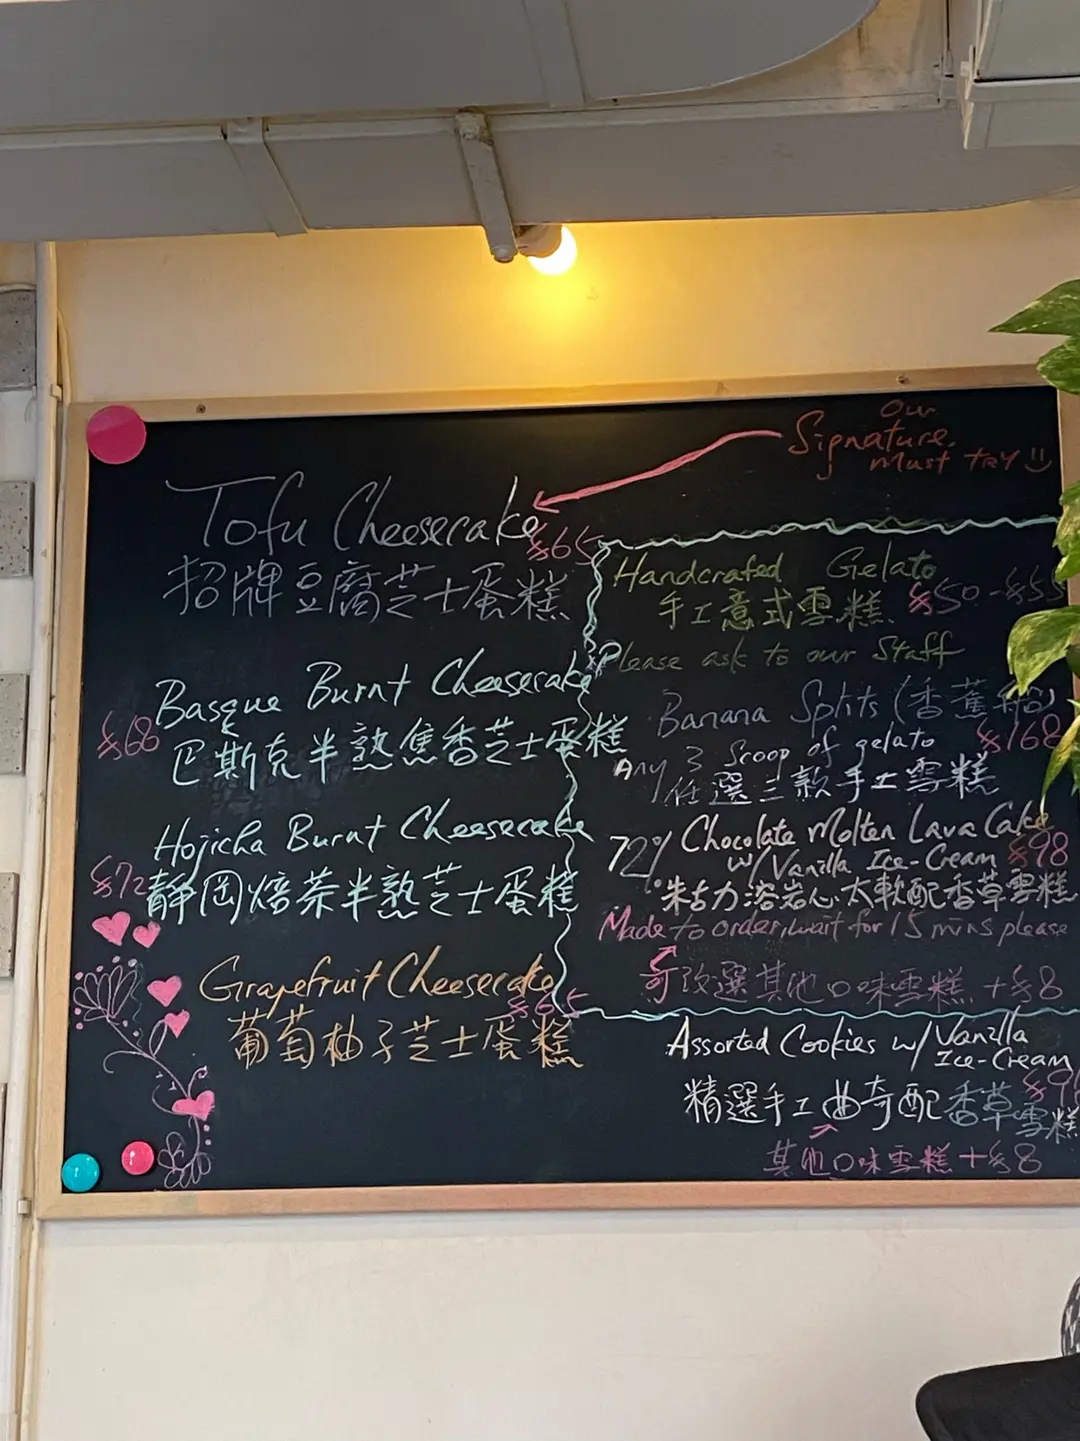 Our
Signature.
Must TRY
Tofu Cheesecake
$65
招牌豆腐芝士蛋糕
Basque Burnt Cheesecake
$68
巴斯克半熟焦香芝士蛋糕
Hojicha Burnt Cheesecake
$72
靜岡焙茶半熟芝士蛋糕
Grapefruit Cheesecake
$65
葡萄柚子芝士蛋糕
Handcrafed Gelato
手工意式雪糕 $50-$55
Please ask to our Staff
Banana Splits (香蕉船)
$168
Any 3 Scoop of gelato
任選三款手工雪糕
72% Chocolate Molten Lava Cake
w/ Vanilla Ice-Cream $98
朱古力溶岩心太軟配香草雪糕
Made to order, wait for 15 mins please
可改選其他口味雪糕 +$8
Assorted Cookies w/ Vanilla
Ice-Cream
精選手工曲奇配香草雪糕
其他口味雪糕 +$8